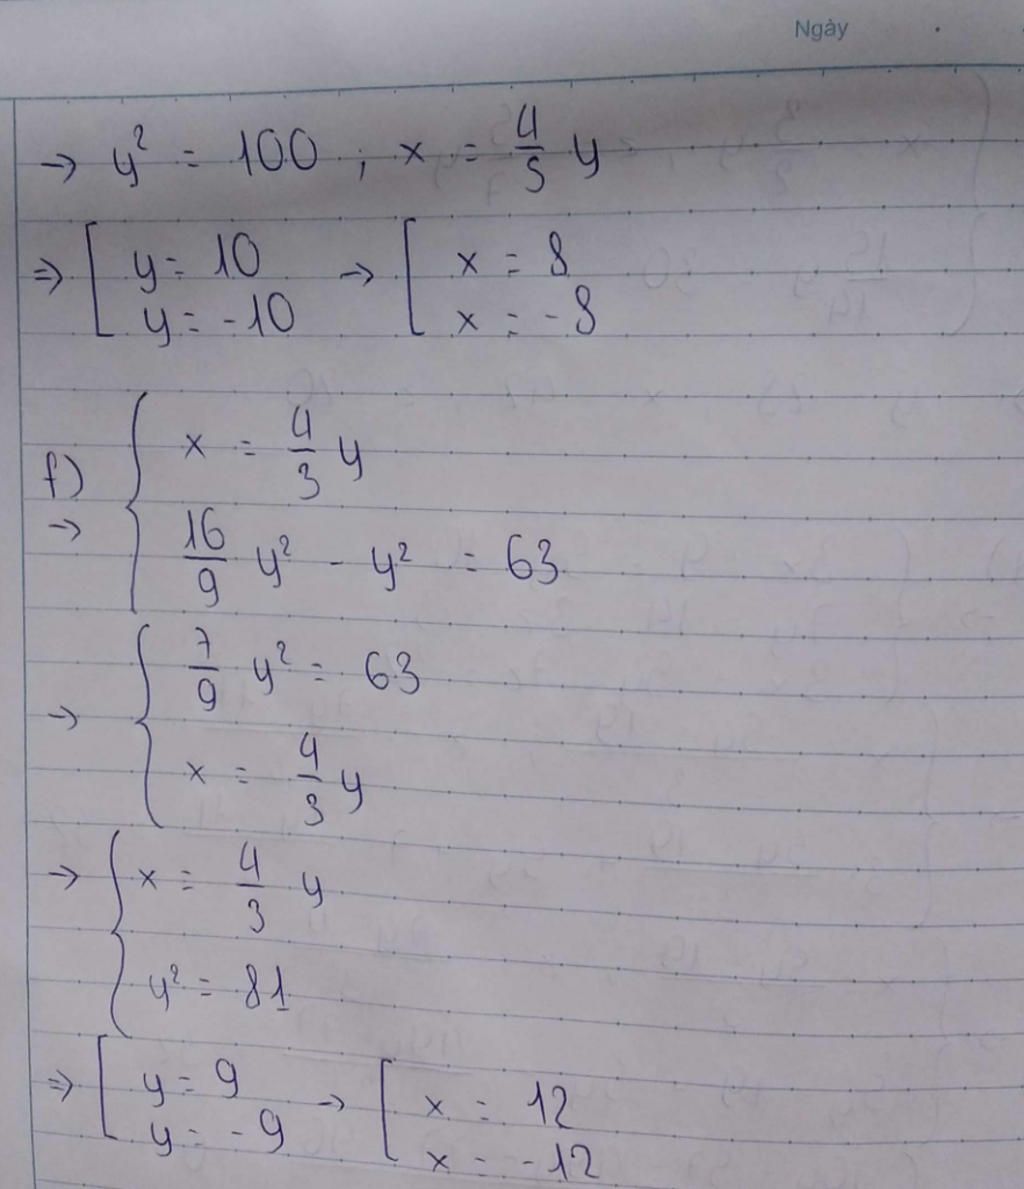 Ngày
→ y² = 100 ; x = 4/5 y
⇒ [ y = 10 → [ x = 8
y = -10 x = -8
f) { x = 4/3 y
→ 16/9 y² - y² = 63
→ { 7/9 y² = 63
x = 4/3 y
→ { x = 4/3 y
y² = 81
⇒ [ y = 9 → [ x = 12
y = -9 x = -12